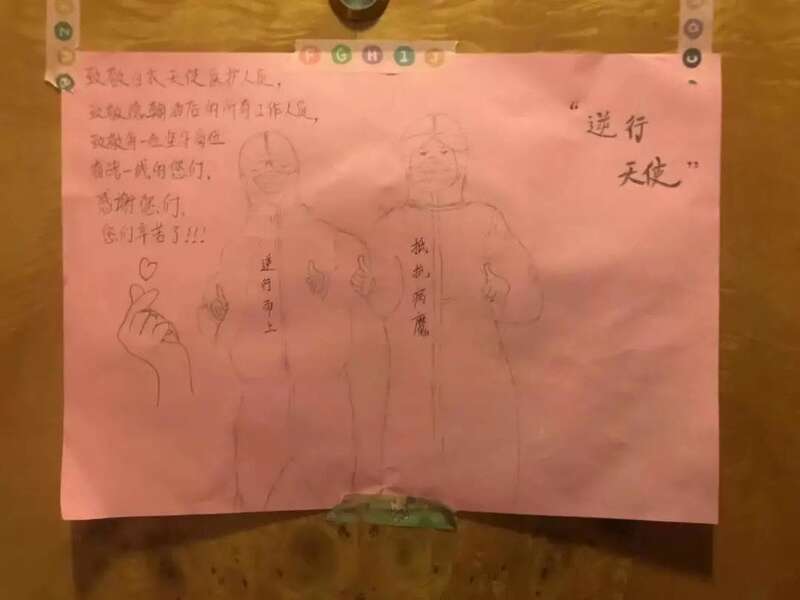 F G H I J
致敬白衣天使医护人员,
致敬隐翱背后的所有工作人员,
致敬每一位坚守岗位
奋战一线的您们,
感谢您们,
您们辛苦了!!!
逆行而上
抵抗病魔
“逆行
天使”